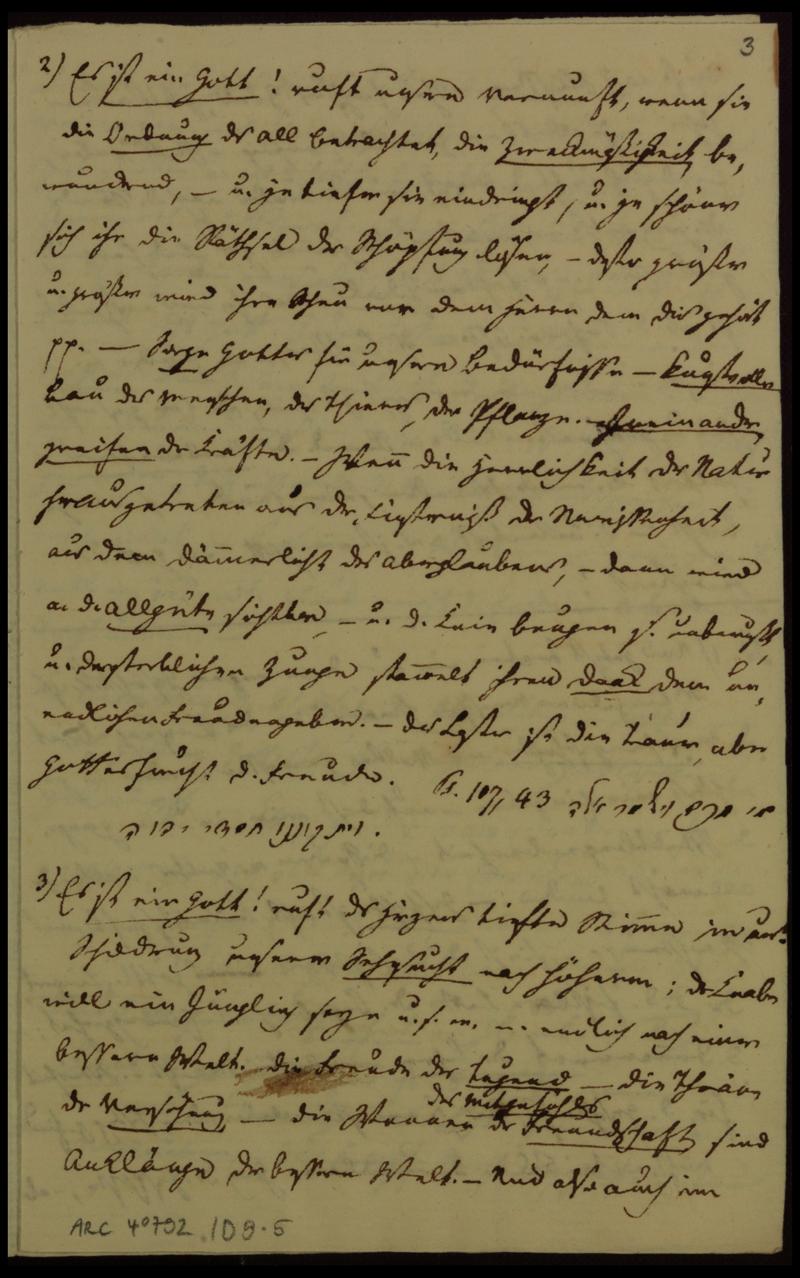 3
2) Es ist ein Gott! ruft unsere Vernunft, wenn sie
die Ordnung des All betrachtet, die Zweckmäßigkeit be-
wundernd, – u. je tiefer sie eindringt, u. je schöner
sich ihr die Räthsel der Schöpfung lösen, – desto größer
u. größer wird ihre Scheu vor dem Herrn dem dies gehört
pp. — Sorge Gottes für unsere Bedürfnisse – kunstvoller
Bau des Menschen, des Thieres, der Pflanze. Ineinander
greifen der Kräfte. – Wenn die Herrlichkeit der Natur
herausgetreten aus der Finsterniß der Unwissenheit,
aus dem Dämmerlicht des Aberglaubens, – dann wird
a. d. Allgüte sichtbar – u. d. Knie beugen s. unbewußt
u. der sterblichen Zunge stammelt ihren Dank dem un-
endlichen Freudengeber. – des Lasters ist die Trauer, aber
Gottesfurcht d. Freude. Ps. 107, 43 מי חכם וישמר אלה
ויתבוננו חסדי יהוה.
3) Es ist ein Gott! ruft des Herzens tiefste Stimme in
Schilderung unserer Sehnsucht nach Höherem; der Knabe
will ein Jüngling seyn u. s. w. u. endlich nach einer
bessern Welt. die Freude der Tugend – die Thräne
des Mitgefühles
der – die Wonnen der Freundschaft sind
Anklänge der bessern Welt. – Und also auch im
ARC 4°792 /D9-5